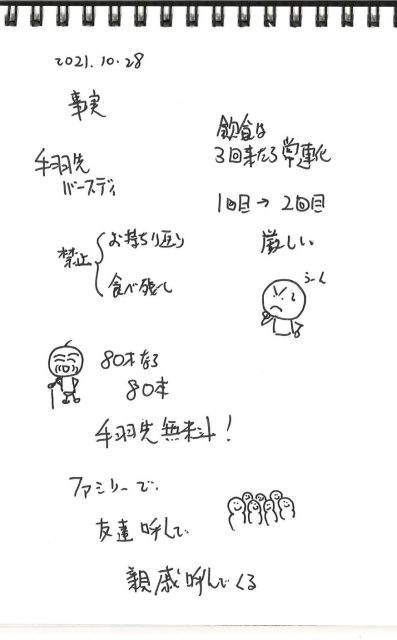 2021.10.28
事実
手羽先
バースディ
禁止
お持ち返り
食べ残し
80才なら
80本
手羽先無料!
ファミリーで、
友達呼んで
親戚呼んでくる
飲食は
3回来たら常連化
1回目→2回目
厳しい
うーん